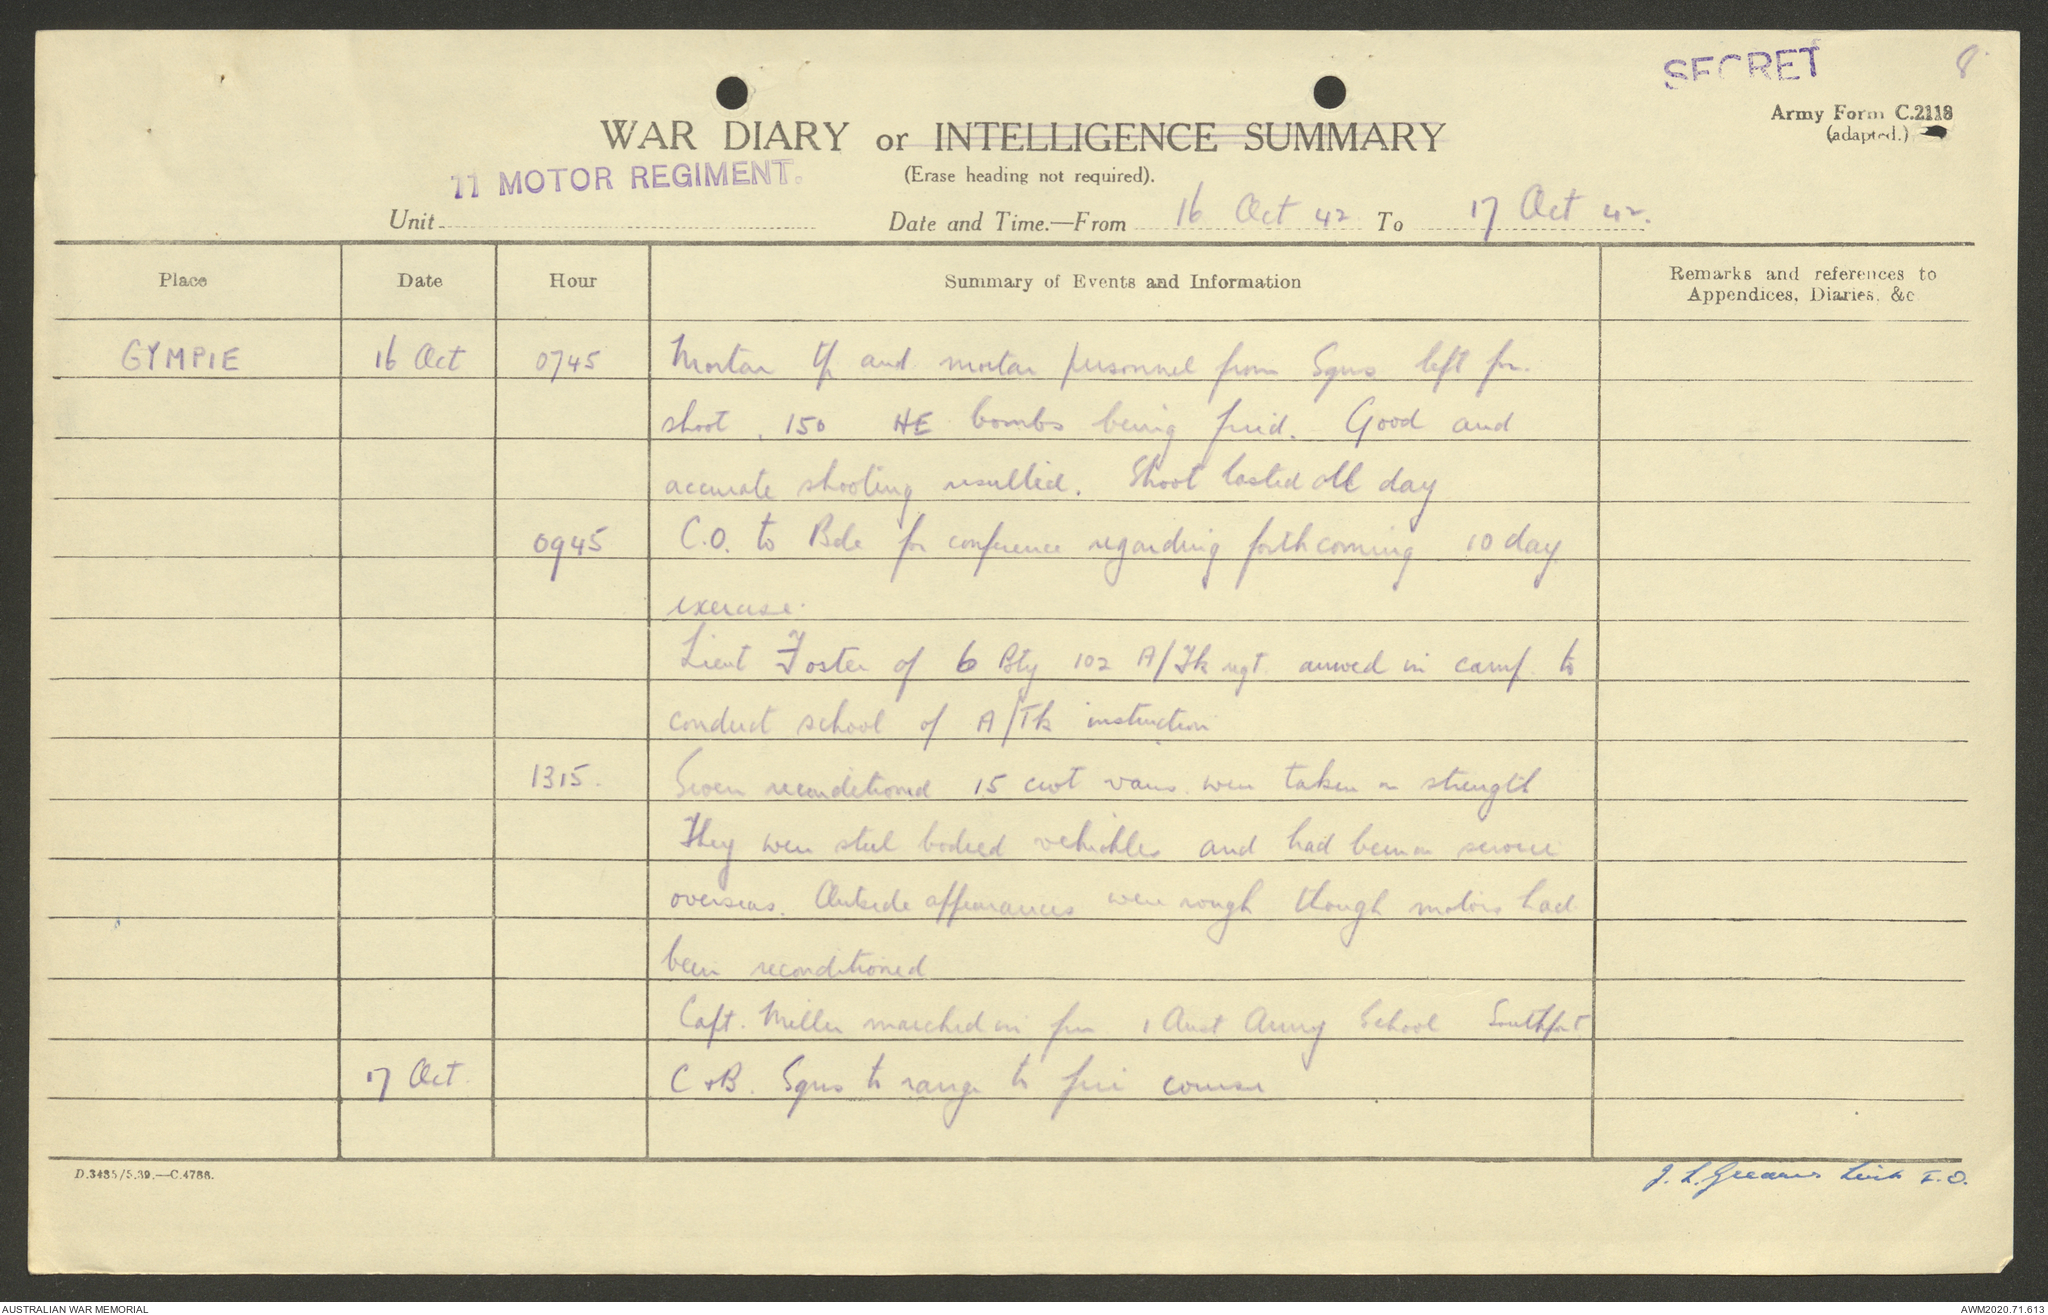 SECRET
8
Army Form C.2118
(adapted.)
WAR DIARY or INTELLIGENCE SUMMARY
(Erase heading not required).
11 MOTOR REGIMENT.
Unit
Date and Time.—From 16 Oct 42 To 17 Oct 42.
Place Date Hour Summary of Events and Information Remarks and references to
Appendices, Diaries, &c
GYMPIE 16 Oct 0745 Mortar tp and mortar personnel from Sqns left for
shoot, 150 HE bombs being fired. Good and
accurate shooting resulted. Shoot lasted all day
0945 C.O. to Bde for conference regarding forthcoming 10 day
exercise.
Lieut Foster of 6 Bty 102 A/Tk rgt. arrived in camp to
conduct school of A/Tk instruction
1315. Seven reconditioned 15 cwt vans were taken on strength
They were steel bodied vehickles and had been on service
overseas. Outside appearances were rough though motors had
been reconditioned
Capt. Miller marched in from 1 Aust Army School Southport
17 Oct. C & B. Sqns to range to fire course
D.3485/5.39.—C.4788.
J. L. Lieut I.O.
AUSTRALIAN WAR MEMORIAL
AWM2020.71.613